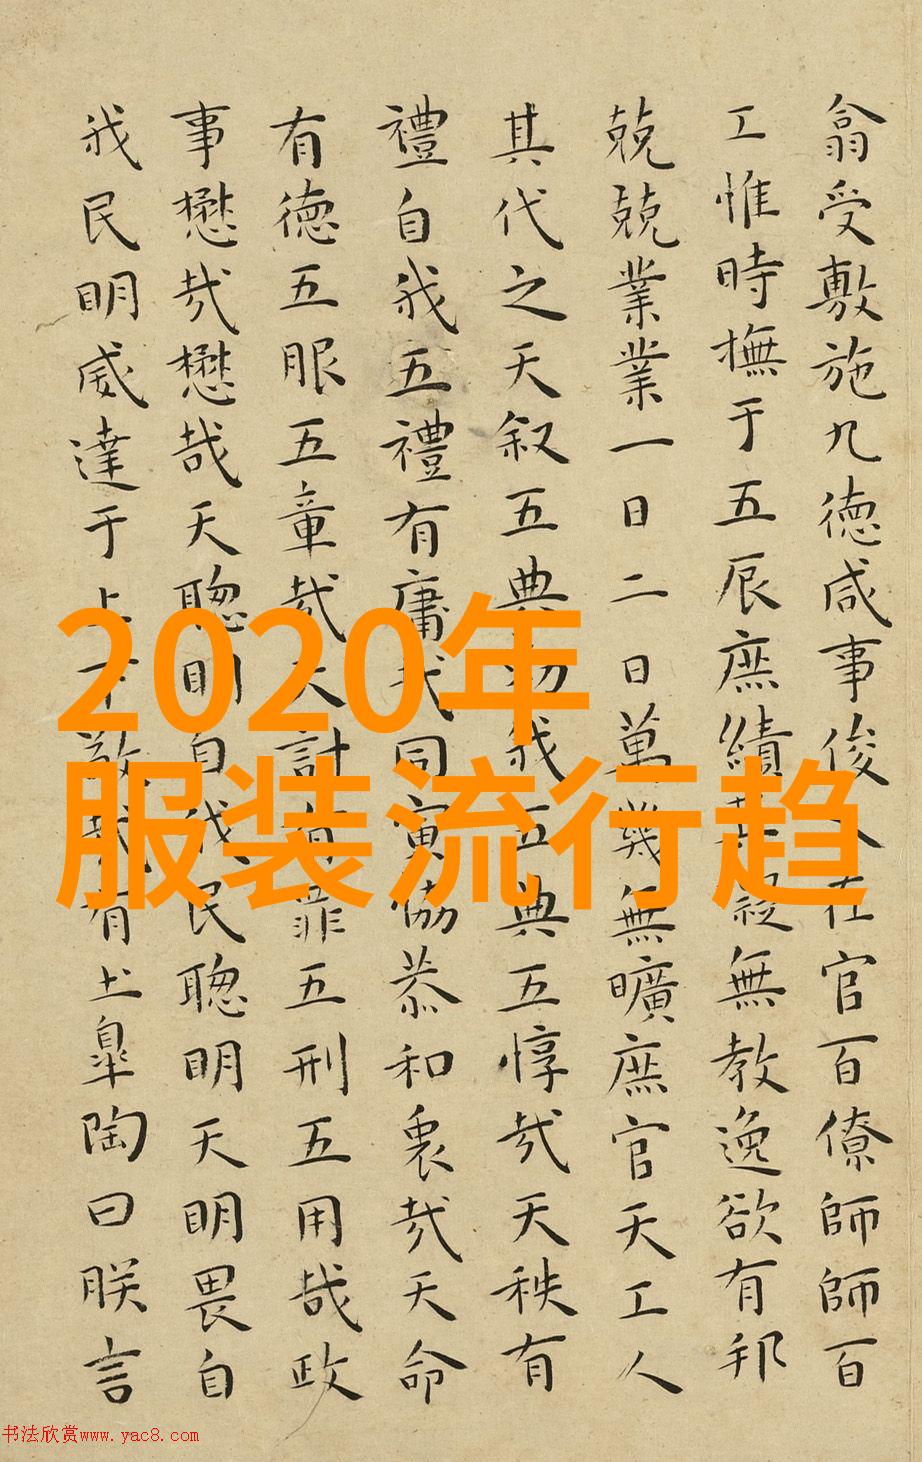 翕受敷施九徳咸事俊乂在官百僚師師百
工惟時撫于五辰庶績其凝無教逸欲有邦
兢兢業業一日二日萬幾無曠庶官天工人
其代之天叙五典勑我五典五惇哉天秩有
禮自我五禮有庸哉同寅協恭和衷哉天命
有徳五服五章哉天討有罪五刑五用哉政
事懋哉懋哉天聰明自我民聰明天明畏自
我民明威達于上下敬哉有土皐陶曰朕言
2020年
服装流行趋
书法欣赏www.yac8.com